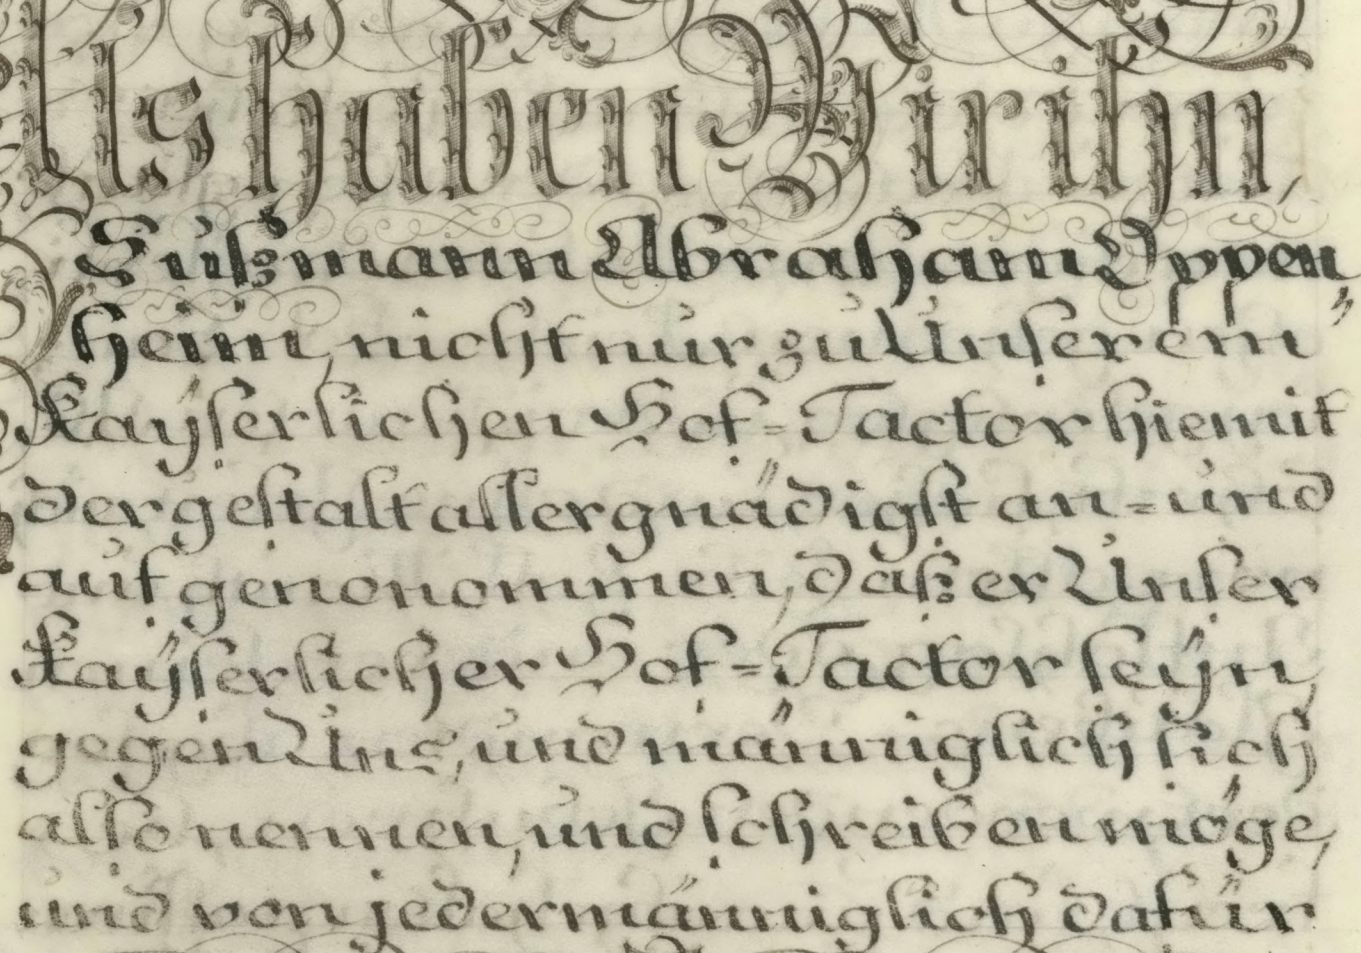 Als haben Wir ihn,
Süßmann Abraham Oppen„
heim, nicht nur zu Unserem
Kaÿserlichen Hof=Factor hiemit
dergestalt allergnädigst an= und
aufgenonommen, daß er Unser
Kaÿserlicher Hof=Factor seÿn,
gegen Uns, und männiglich sich
also nennen, und schreiben möge,
und von jedermänniglich dafür